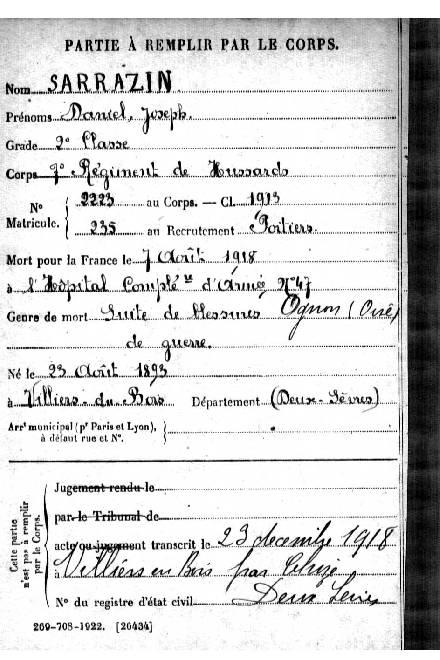 PARTIE À REMPLIR PAR LE CORPS.
Nom SARRAZIN
Prénoms Daniel, Joseph.
Grade 2e Classe
Corps 7e Régiment de Hussards
N° Matricule. { 2223 au Corps. — Cl. 1913
235 au Recrutement Poitiers
Mort pour la France le 7 Août 1918
à l'Hôpital Complre d'Armée N°47
Ognon (Oise)
Genre de mort Suite de blessures
de guerre.
Né le 23 Août 1893
à Villiers-du-Bois Département (Deux-Sèvres)
Arrt municipal (pr Paris et Lyon),
à défaut rue et N°.
Cette partie
n'est pas à remplir
par le Corps.
Jugement rendu le
par le Tribunal de
acte ou jugement transcrit le 23 decembre 1918
à Villiers en Bois par Chizé
Deux Sèvres
N° du registre d'état civil
269-708-1922. [26434]